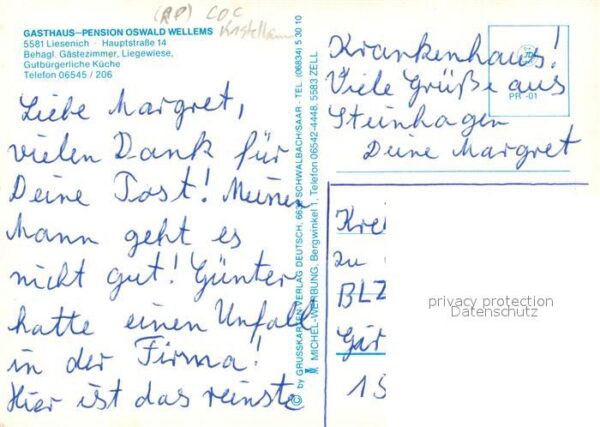 (RP) COC
GASTHAUS–PENSION OSWALD WELLEMS
5581 Liesenich · Hauptstraße 14
Behagl. Gästezimmer, Liegewiese,
Gutbürgerliche Küche
Telefon 06545 / 206
Liebe Margret,
vielen Dank für
Deine Post! Meinem
Mann geht es
nicht gut! Günter
hatte einen Unfall
in der Firma!
Hier ist das reinste
© by GRUSSKARTEN-VERLAG DEUTSCH, SCHWALBACH/SAAR · TEL. (06834) 5 30 10
MICHEL-WERBUNG, Bergwinkel 1, Telefon 06542-4448, 5583 ZELL
Krankenhaus!
Viele Grüße aus
Steinhagen
Deine Margret
PR -01
Krei
zu
BLZ
Gir
15
privacy protection
Datenschutz